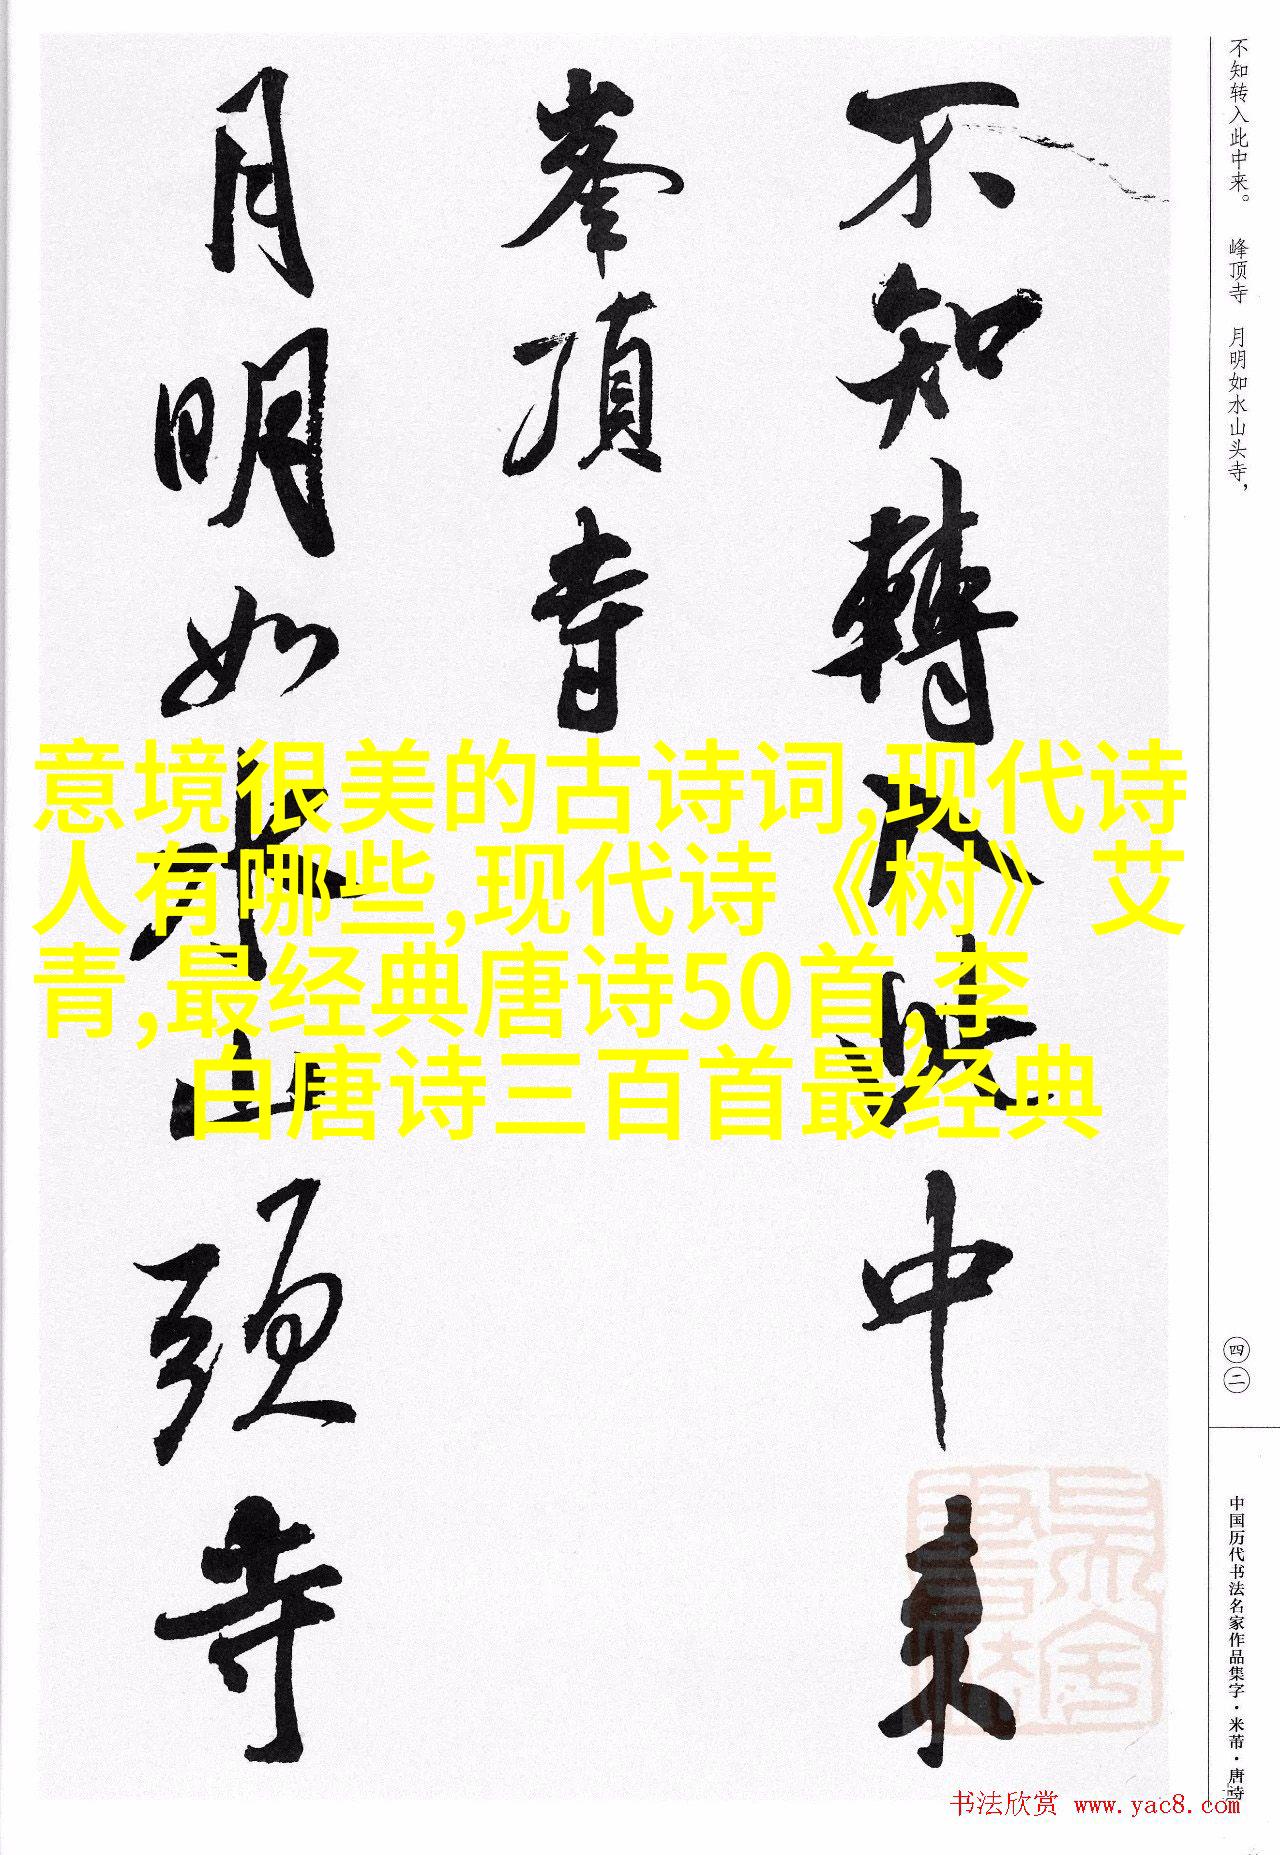 不知转入此中来。 峰顶寺 月明如水山头寺，
不知轉入此中来
峯頂寺
月明如水山頭寺
意境很美的古诗词,现代诗
人有哪些,现代诗《树》艾
青,最经典唐诗50首,李
白唐诗三百首最经典
四二
中国历代书法名家作品集字·米芾·唐诗
书法欣赏 www.yac8.com